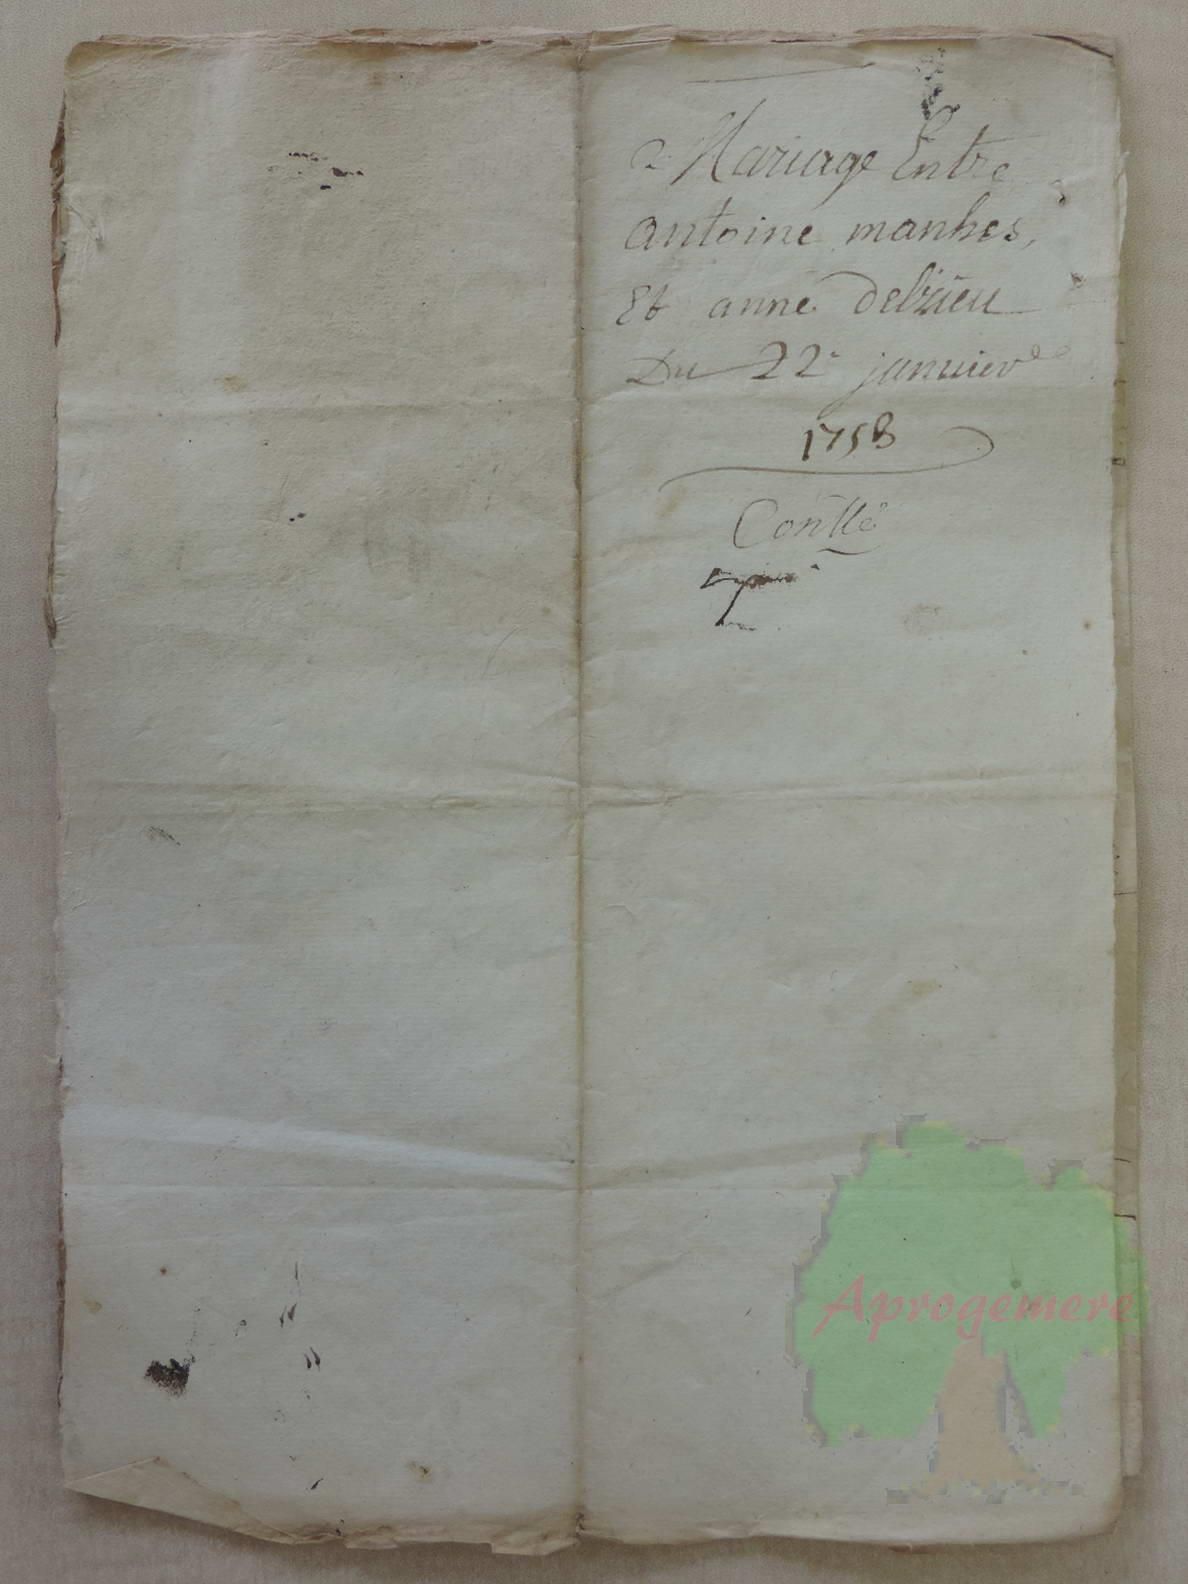 Mariage Entre
antoine manhes,
Et anne delrieu
Du 22e janvier
1758
Con'lle
Aprogemere